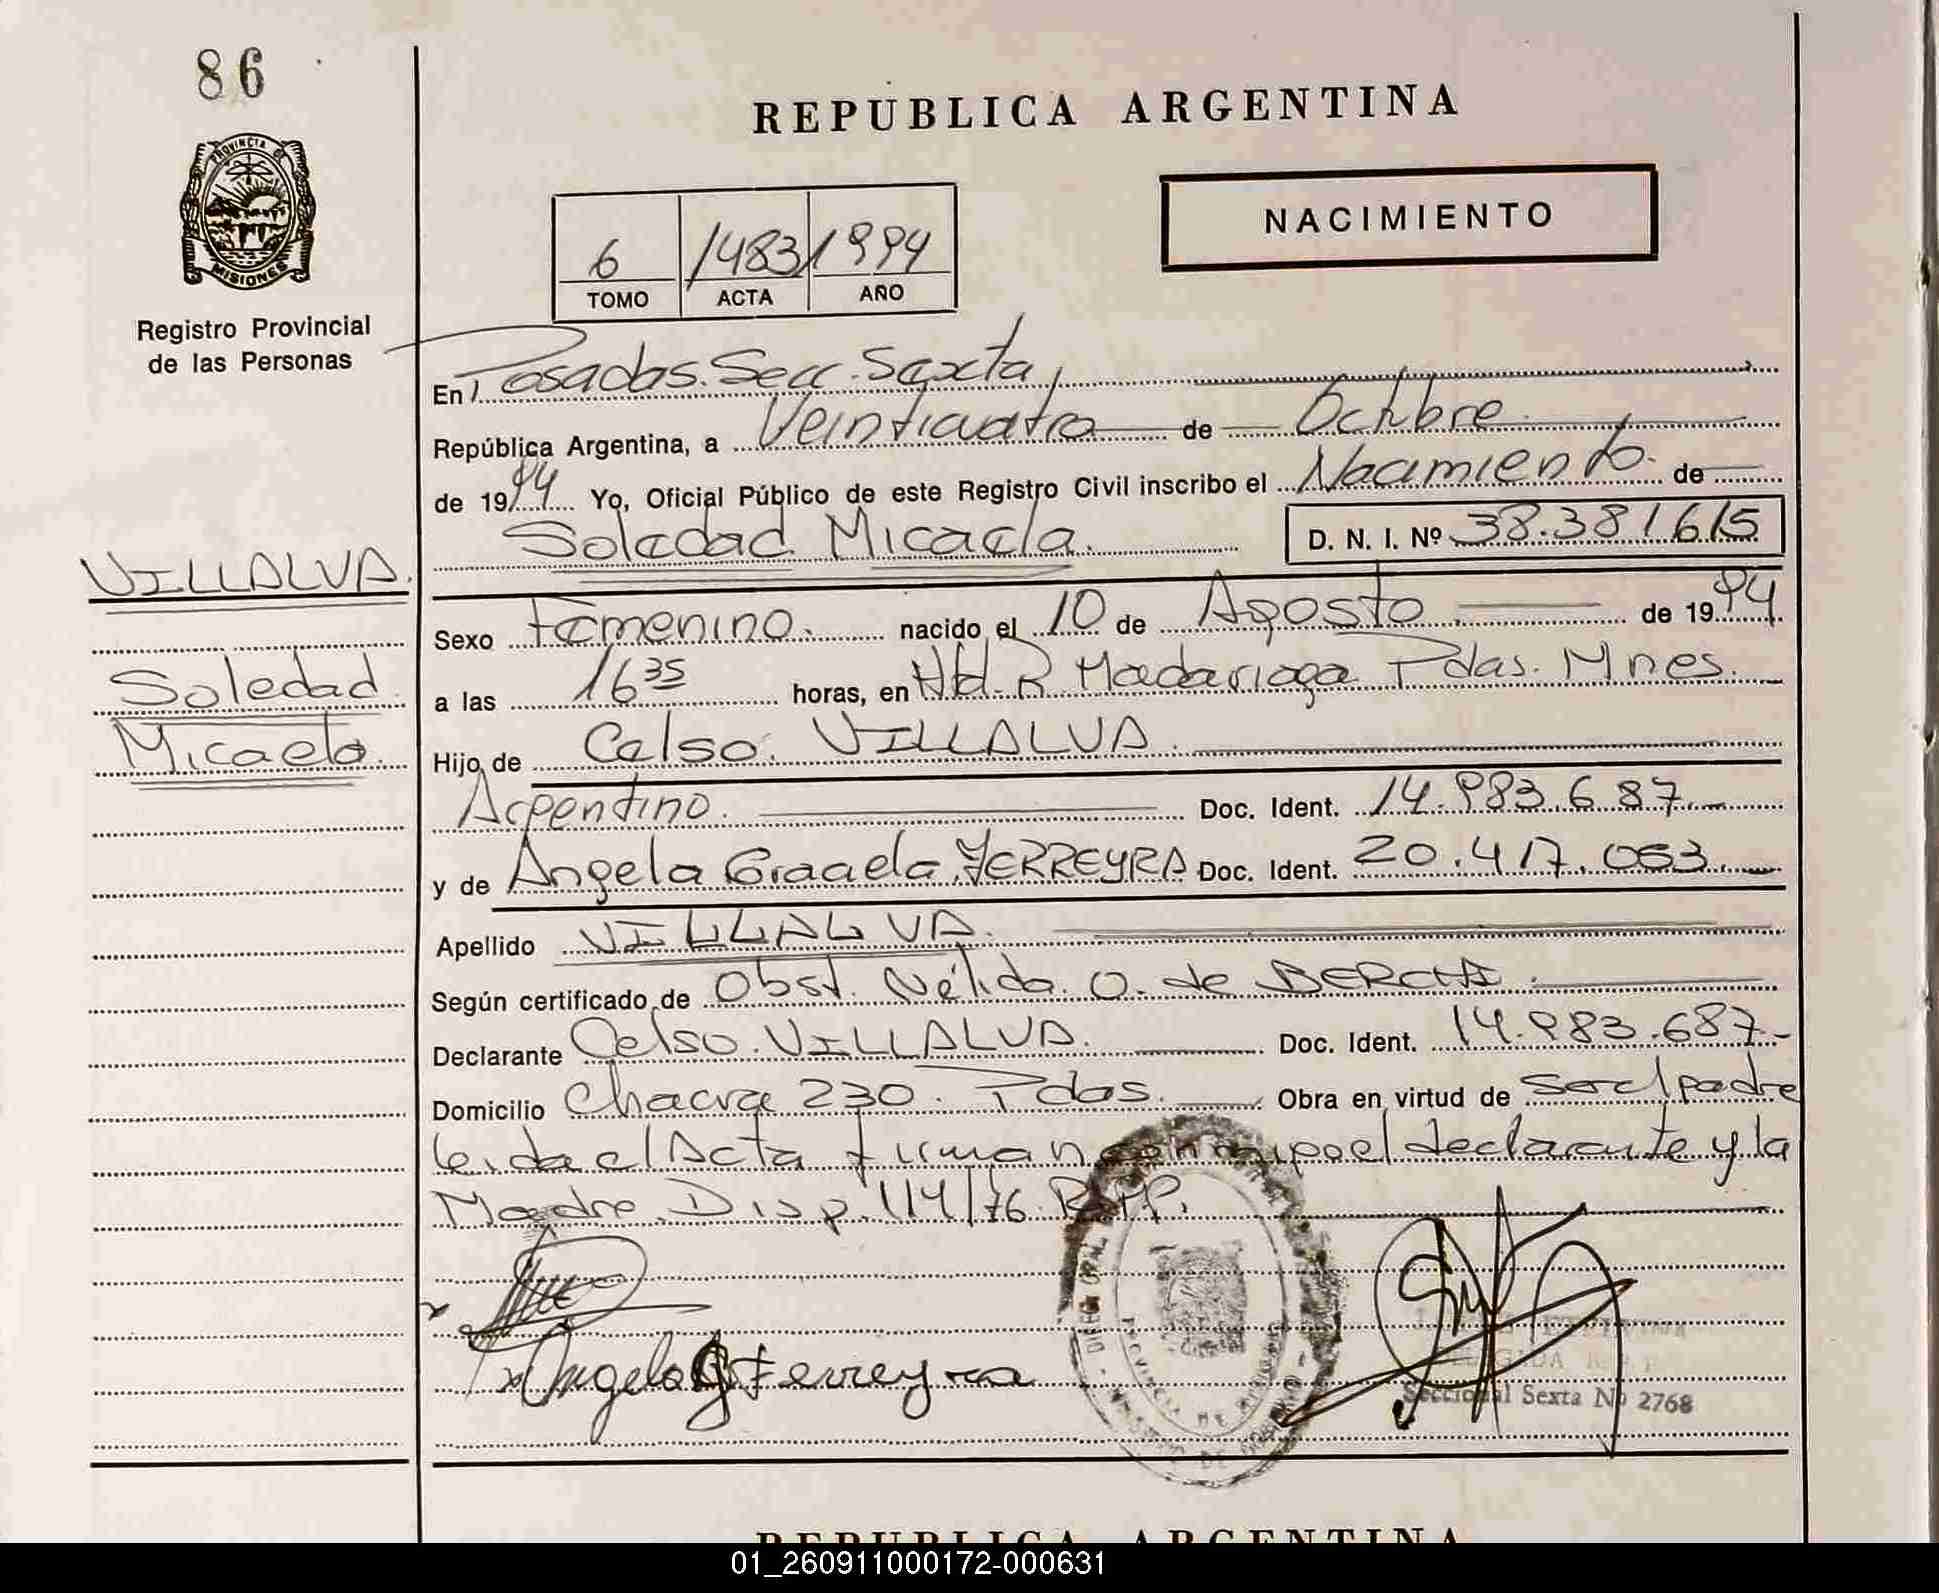 86
REPUBLICA ARGENTINA
PROVINCIA DE
MISIONES
Registro Provincial
de las Personas
NACIMIENTO
6 1483 1994
TOMO ACTA AÑO
En Posadas. Secc. Sexta,
República Argentina, a Veinticuatro de Octubre
de 1994 Yo, Oficial Público de este Registro Civil inscribo el Nacimiento de
Soledad Micaela. D. N. I. Nº 38.381.615
VILLALVA.
Soledad
Micaela.
Sexo Femenino. nacido el 10 de Agosto de 1994
a las 16 35 horas, en Htal. R Madariaga Pdas. Mnes.
Hijo de Celso. VILLALVA
Argentino. Doc. Ident. 14.983.687
y de Angela Graciela FERREYRA Doc. Ident. 20.417.053
Apellido VILLALVA.
Según certificado de Obst. Nélida O. de
Declarante Celso VILLALVA. Doc. Ident. 14.983.687
Domicilio Chacra 230. Pdas. Obra en virtud de ser el padre
leida el Acta firman conmigo el declarante y la
Madre. Disp. 114/76 R.P.P.
x
x Angela G Ferreyra
PROVINCIA DE MISIONES
Seccional Sexta Nº 2768
REPUBLICA ARGENTINA
01_260911000172-000631